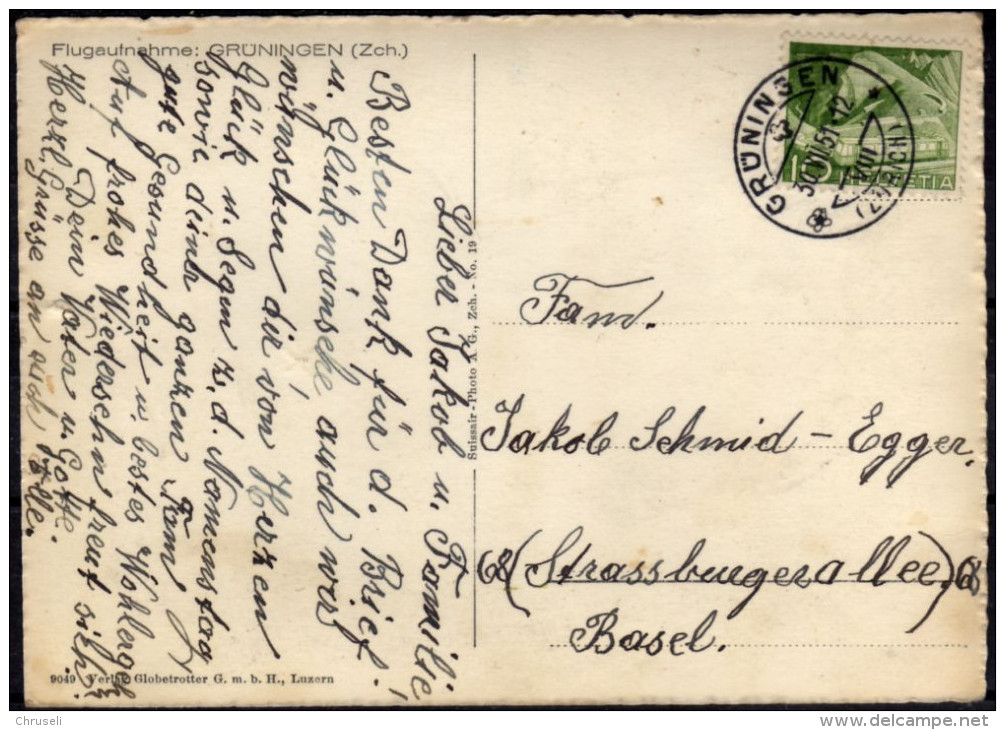 Flugaufnahme: GRÜNINGEN (Zch.)
Lieber Jakob u. Familie!
Besten Dank für d. Brief
u. Glückwünsche auch wir
wünschen dir von Herzen
Glück u. Segen z. d. Namenstag
sowie deiner ganzen Fam
gute Gesundheit u. bestes Wohlergeh
Auf frohes Wiedersehn freut sich:
Dein Vater u. Gotte.
Herzl. Grüsse an euch Alle.
Suissair-Photo A G., Zch. - No. 19
GRÜNINGEN
30.VII.51-12
VIII
(ZÜRICH)
10 HELVETIA
Fam.
Jakob Schmid-Egger.
68 (Strassburgerallee) 68
Basel.
9049 Verlag Globetrotter G. m. b. H., Luzern
Chruseli
www.delcampe.net